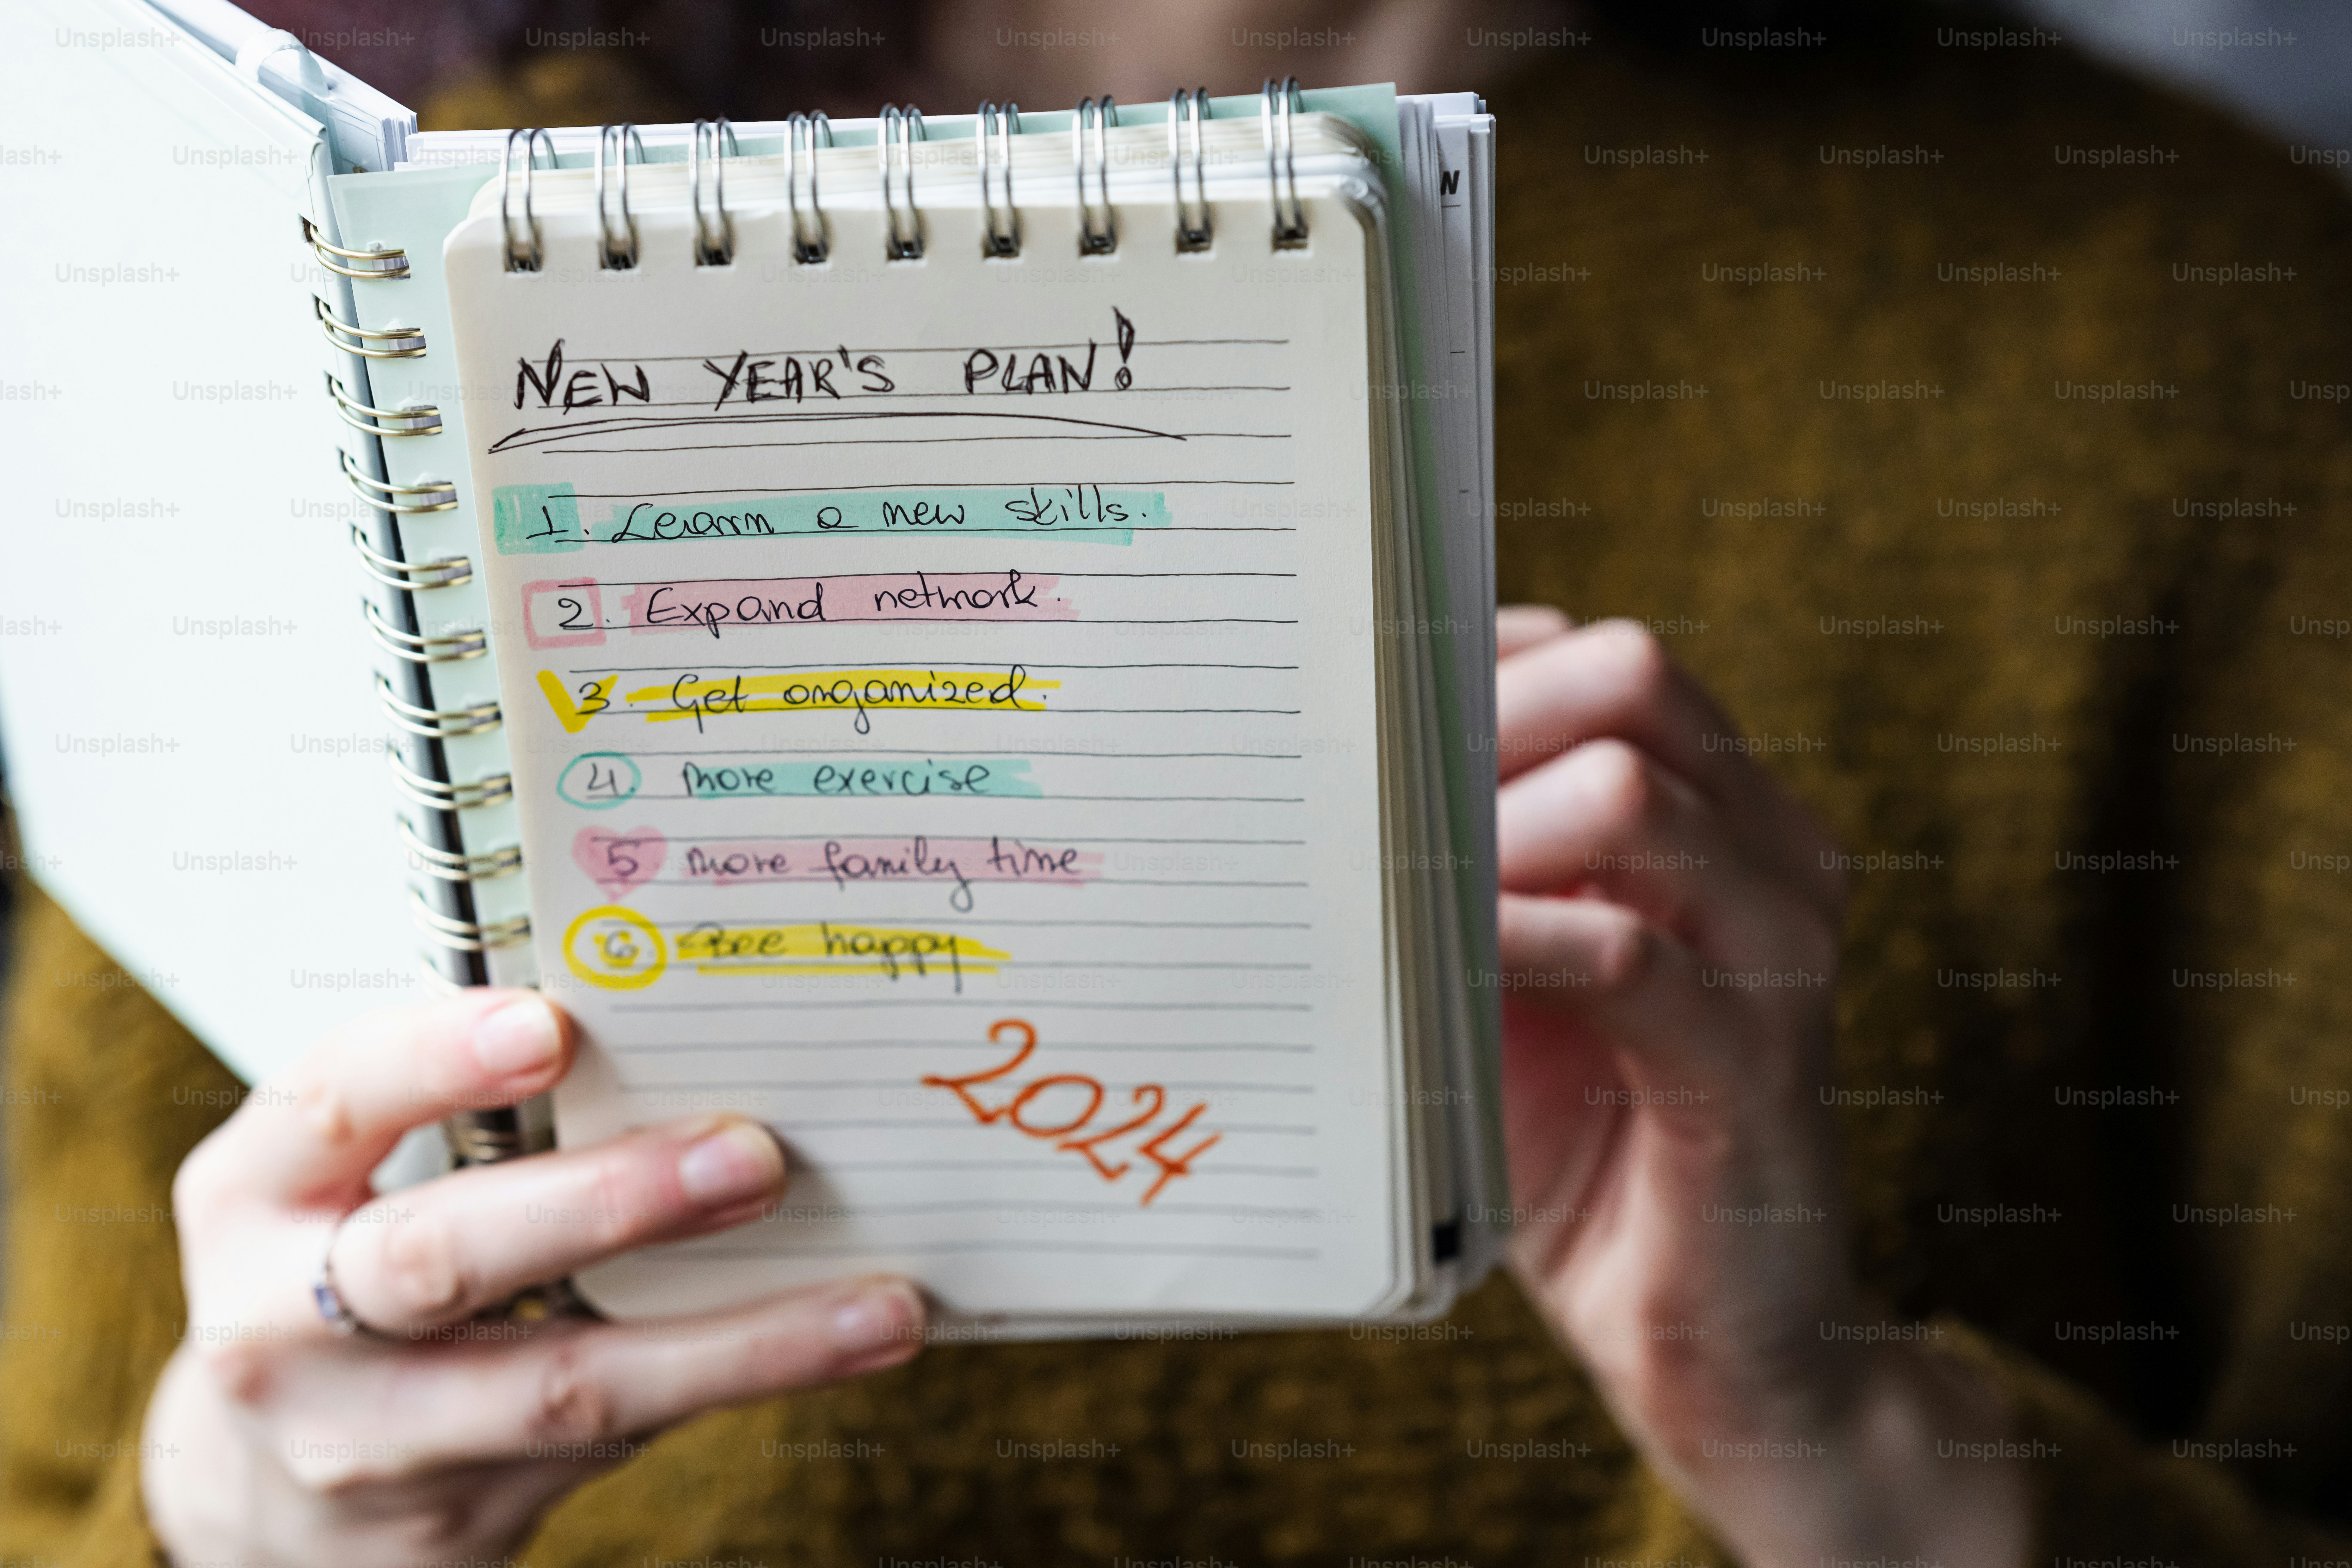 NEW YEAR'S PLAN!
1. Learn a new skills.
2. Expand network.
3. Get organized.
4. more exercise
5 more family time
6. Bee happy
2024
N
Unsplash+